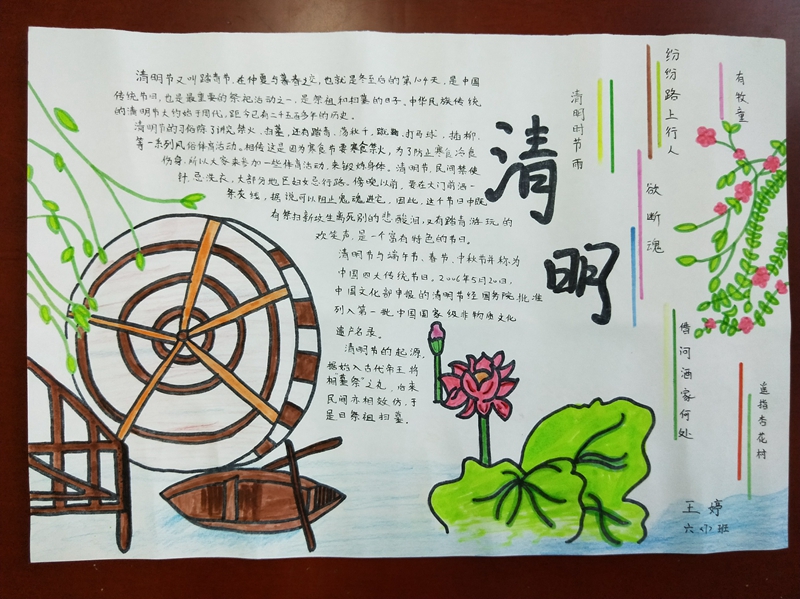 清明节又叫踏青节,在仲春与暮春之交,也就是冬至后的第104天,是中国
传统节日,也是最重要的祭祀活动之一,是祭祖和扫墓的日子,中华民族传统
的清明节大约始于周代,距今已有二千五百多年的历史。
清明节的习俗除了讲究禁火、扫墓,还有踏青、荡秋千、蹴鞠、打马球、插柳,
等一系列风俗体育活动。相传这是因为寒食节要寒食禁火,为了防止寒食冷食
伤身,所以大家来参加一些体育活动,来锻炼身体。清明节,民间禁使
针,忌洗衣,大部分地区妇女忌行路。傍晚以前,要在大门前洒一
条灰线,据说可以阻止鬼魂进宅。因此,这个节日中既
有祭扫新坟生离死别的悲酸泪,又有踏青游玩的
欢笑声,是一个富有特色的节日。
清明节与端午节、春节、中秋节并称为
中国四大传统节日。2006年5月20日,
中国文化部申报的清明节经国务院批准
列入第一批中国国家级非物质文化
遗产名录。
清明节的起源,
据始入古代帝王将
相"墓祭"之礼,后来
民间亦相效仿,于
是日祭祖扫墓。
清明
清明时节雨
纷纷路上行人
欲断魂
借问酒家何处
有牧童
遥指杏花村
王婷
六(1)班